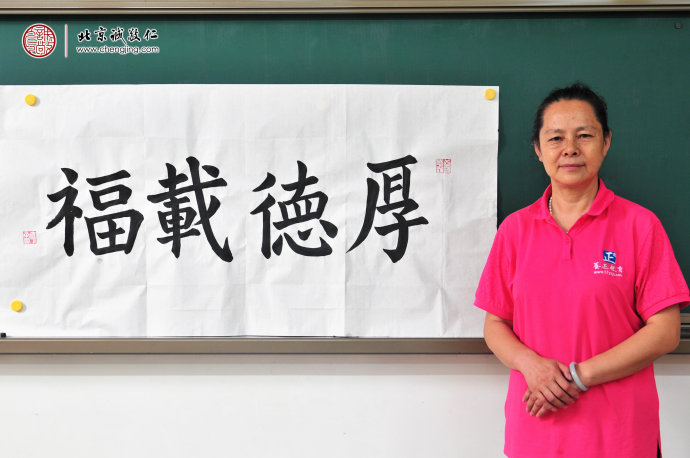 北京诚敬仁
www.chengjing.com
厚德載福
正